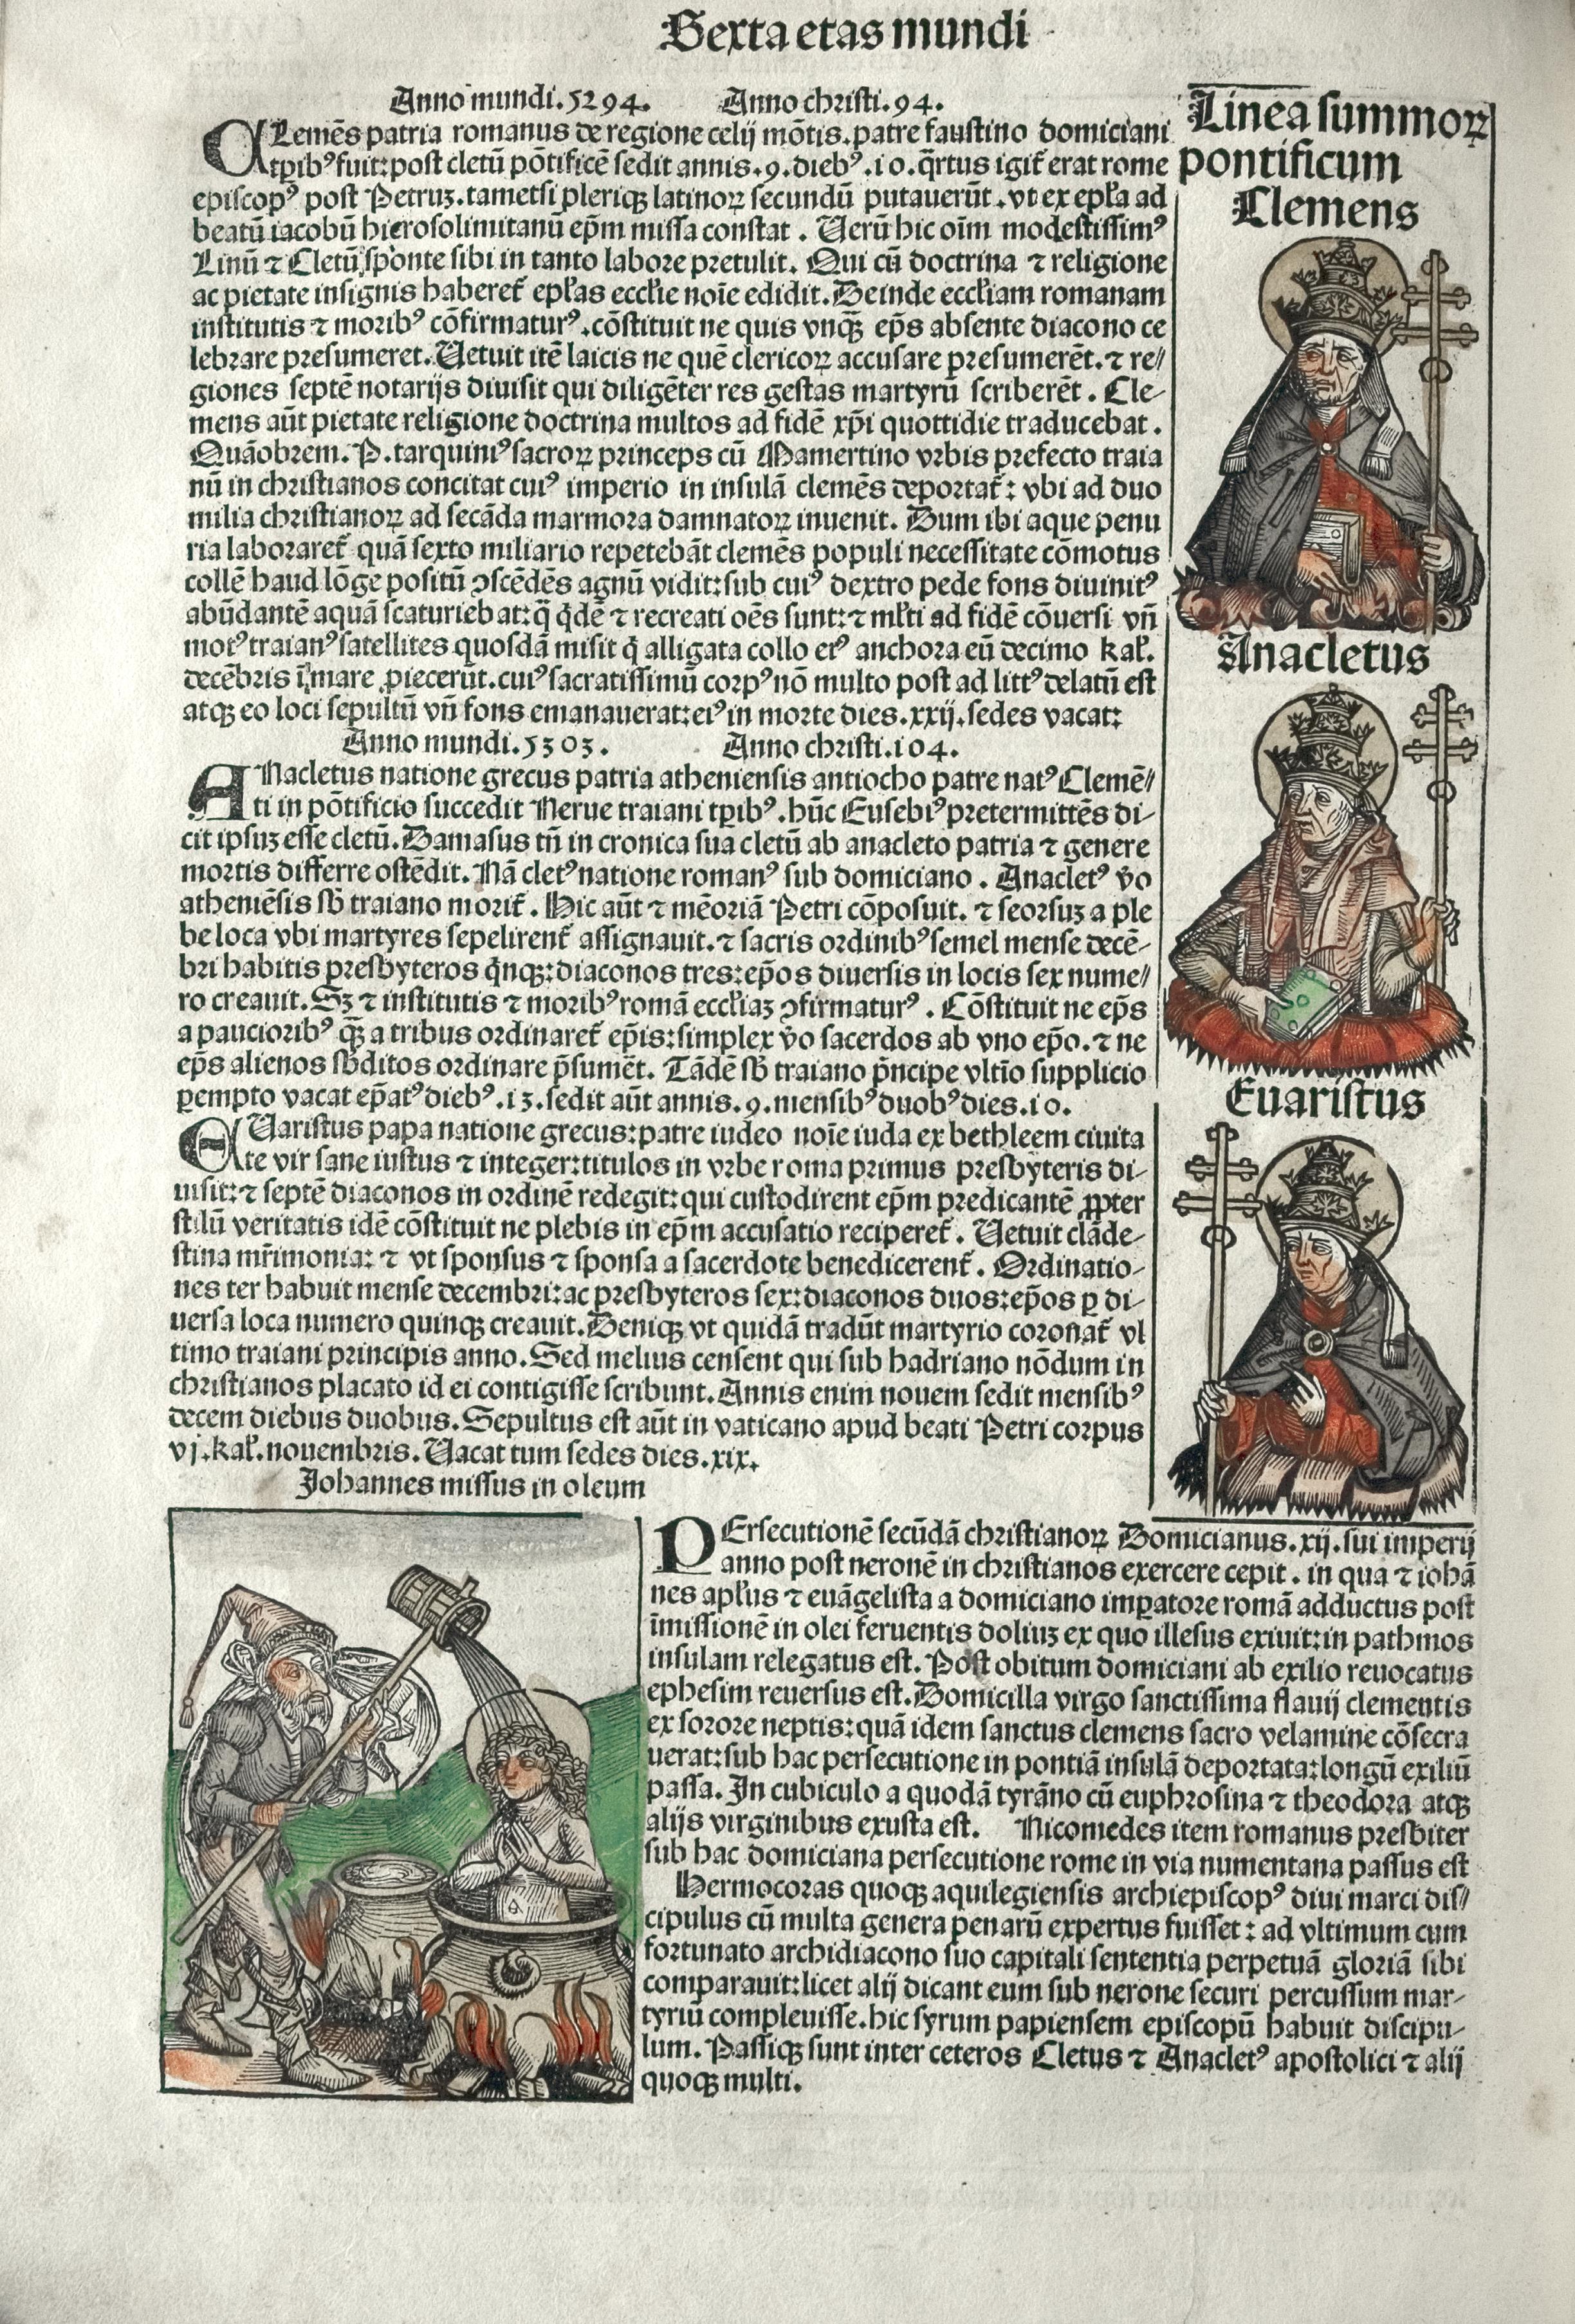 Sexta etas mundi
Anno mundi.5294. Anno christi.94.
CLemēs patria romanus de regione celij mōtis.patre faustino domiciani
tꝑibꝰ fuit:post cletū pōtificē sedit annis.9.diebꝰ.10.q̄rtus igit᷑ erat rome
episcopꝰ post Petruꝫ.tametsi pleriqꝫ latinoꝝ secundū putauerūt.vt ex epl̄a ad
beatū iacobū hierosolimitanū ep̄m missa constat. Uerū hic oīm modestissimꝰ
Linū ⁊ Cletū sponte sibi in tanto labore pretulit. Qui cū doctrina ⁊ religione
ac pietate insignis haberet᷑ epl̄as eccl̄ie noīe edidit. Deinde eccl̄iam romanam
institutis ⁊ moribꝰ cōfirmaturꝰ.cōstituit ne quis vnqꝫ̄ ep̄s absente diacono ce
lebrare presumeret. Uetuit itē laicis ne quē clericoꝝ accusare presumerēt.⁊ re//
giones septē notarijs diuisit qui diligēter res gestas martyrū scriberēt. Cle-
mens aūt pietate religione doctrina multos ad fidē xp̄i quottidie traducebat.
Quāobrem. P. tarquiniꝰ sacroꝝ princeps cū Mamertino vrbis prefecto traia
nū in christianos concitat cuiꝰ imperio in insulā clemēs deportat᷑: vbi ad duo
milia christianoꝝ ad secāda marmora damnatoꝝ inuenit. Dum ibi aque penu
ria laboraret᷑ quā sexto miliario repetebāt clemēs populi necessitate cōmotus
collē haud lōge positū ꝯscēdēs agnū vidit:sub cuiꝰ dextro pede fons diuinitꝰ
abūdantē aquā scaturiebat:q̄ q̇dē ⁊ recreati oēs sunt:⁊ ml̄ti ad fidē cōuersi vn̄
motꝰ traianꝰ satellites quosdā misit q̇ alligata collo eiꝰ anchora eū decimo kal̄.
decēbris ī mare ꝓiecerūt.cuiꝰ sacratissimū corpꝰ nō multo post ad littꝰ delatū est
atqꝫ eo loci sepultū vn̄ fons emanauerat:eiꝰ in morte dies.xxij.sedes vacat:
Anno mundi.5303. Anno christi.104.
ANacletus natione grecus patria atheniensis antiocho patre natꝰ Clemē//
ti in pōtificio succedit Nerue traiani tꝑibꝰ.hūc Eusebiꝰ pretermittēs di-
cit ipsuꝫ esse cletū. Damasus tn̄ in cronica sua cletū ab anacleto patria ⁊ genere
mortis differre ostēdit. Nā cletꝰ natione romanꝰ sub domiciano. Anacletꝰ v̄o
atheniēsis sb̄ traiano morit᷑. Hic aūt ⁊ mēoriā Petri cōposuit. ⁊ seorsuꝫ a ple
be loca vbi martyres sepelirent᷑ assignauit.⁊ sacris ordinibꝰ semel mense decē-
bri habitis presbyteros q̇nqꝫ:diaconos tres:ep̄os diuersis in locis sex nume//
ro creauit. Sꝫ ⁊ institutis ⁊ moribꝰ romā eccl̄iaꝫ ꝯfirmaturꝰ. Cōstituit ne ep̄s
a paucioribꝰ qꝫ̄ a tribus ordinaret᷑ ep̄is:simplex v̄o sacerdos ab vno ep̄o.⁊ ne
ep̄s alienos sb̄ditos ordinare p̄sumēt. Tādē sb̄ traiano p̄ncipe vltīo supplicio
ꝑempto vacat ep̄atꝰ diebꝰ.13.sedit aūt annis.9.mensibꝰ duobꝰ dies.10.
EUaristus papa natione grecus:patre iudeo noīe iuda ex bethleem ciuita
te vir sane iustus ⁊ integer:titulos in vrbe roma primus presbyteris di-
uisit:⁊ septē diaconos in ordinē redegit:qui custodirent ep̄m predicantē ꝓpter
stilū veritatis idē cōstituit ne plebis in ep̄m accusatio reciperet᷑. Uetuit clāde-
stina mr̄imonia: ⁊ vt sponsus ⁊ sponsa a sacerdote benedicerent᷑. Ordinatio-
nes ter habuit mense decembri:ac presbyteros sex:diaconos duos:ep̄os ꝑ di-
uersa loca numero quinqꝫ creauit. Deniqꝫ vt quidā tradūt martyrio coronat᷑ vl
timo traiani principis anno. Sed melius censent qui sub hadriano nōdum in
christianos placato id ei contigisse scribunt. Annis enim nouem sedit mensibꝰ
decem diebus duobus. Sepultus est aūt in vaticano apud beati Petri corpus
vj.kal̄.nouembris. Uacat tum sedes dies.xix.
Linea summoꝝ
pontificum
Clemens
Anacletus
Euaristus
Johannes missus in oleum
PErsecutionē secūdā christianoꝝ Domicianus.xij.sui imperij
anno post neronē in christianos exercere cepit. in qua ⁊ iohā
nes apl̄us ⁊ euāgelista a domiciano imꝑatore romā adductus post
īmissionē in olei feruentis doliuꝫ ex quo illesus exiuit:in pathmos
insulam relegatus est. Post obitum domiciani ab exilio reuocatus
ephesim reuersus est. Domicilla virgo sanctissima flauij clementis
ex sorore neptis:quā idem sanctus clemens sacro velamine cōsecra
uerat:sub hac persecutione in pontiā insulā deportata:longū exiliū
passa. In cubiculo a quodā tyrāno cū euphrosina ⁊ theodora atqꝫ
alijs virginibus exusta est. Nicomedes item romanus presbiter
sub hac domiciana persecutione rome in via numentana passus est
Hermocoras quoqꝫ aquilegiensis archiepiscopꝰ diui marci dis//
cipulus cū multa genera penarū expertus fuisset: ad vltimum cum
fortunato archidiacono suo capitali sententia perpetuā gloriā sibi
comparauit:licet alij dicant eum sub nerone securi percussum mar-
tyriū compleuisse.hic syrum papiensem episcopū habuit discipu-
lum. Passiqꝫ sunt inter ceteros Cletus ⁊ Anacletꝰ apostolici ⁊ alij
quoqꝫ multi.